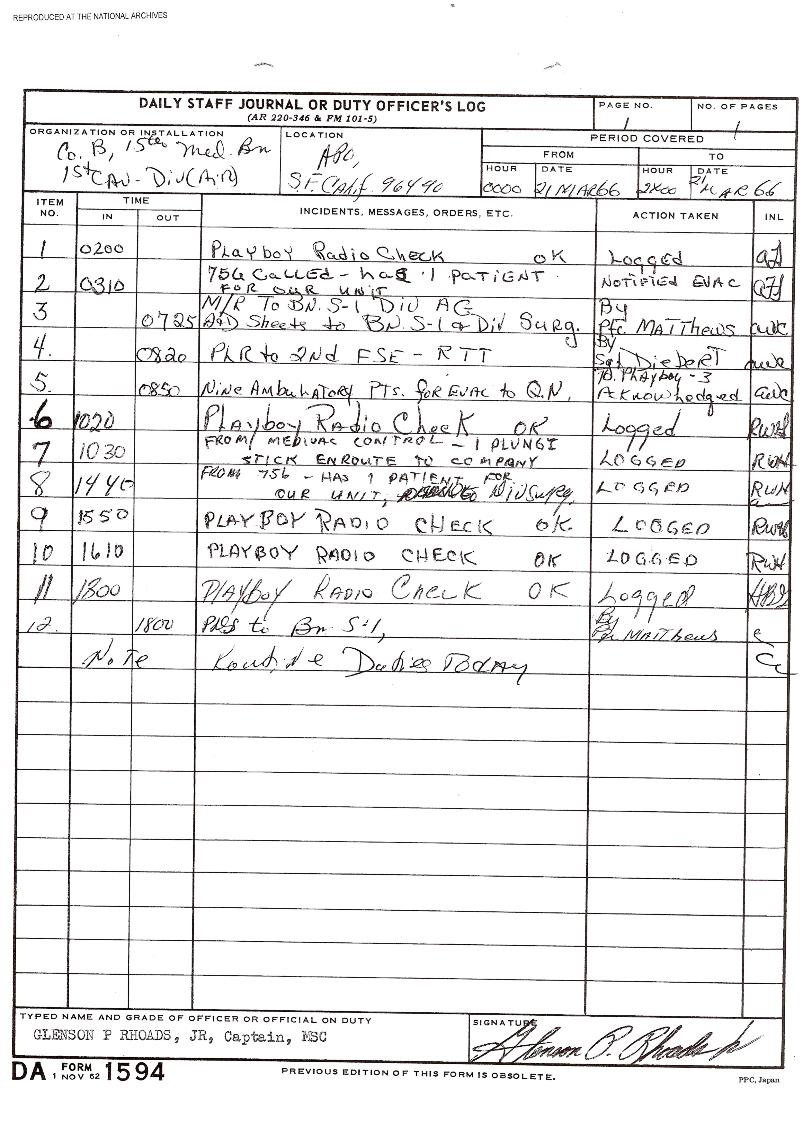 REPRODUCED AT THE NATIONAL ARCHIVES
DAILY STAFF JOURNAL OR DUTY OFFICER'S LOG
(AR 220-346 & FM 101-5)
PAGE NO.
1
NO. OF PAGES
1
ORGANIZATION OR INSTALLATION
Co. B, 15th Med. Bn
1st CAV-Div(Air)
LOCATION
APO,
S.F. Calif. 96490
PERIOD COVERED
FROM
TO
HOUR
DATE
HOUR
DATE
0000
21 MAR 66
2400
21 MAR 66
ITEM NO.
TIME
IN
OUT
INCIDENTS, MESSAGES, ORDERS, ETC.
ACTION TAKEN
INL
1 0200 Playboy Radio Check OK Logged
2 0310 756 Called - has 1 PATIENT NOTIFIED EVAC
FOR OUR UNIT
3 M/R To BN. S-1 Div AG By
0725 A&D Sheets to BN. S-1 & Div Surg. Pfc. MATTHEWS
4. 0820 PLR to 2nd FSE - RTT By Sgt DieberT
5. 0850 Nine Ambulatory PTS. for EVAC to Q.N, Playboy-3
Acknowledged
6 1020 Playboy Radio Check OK Logged RWH
7 1030 FROM MEDIVAC CONTROL - 1 PLUNGI
STICK ENROUTE TO COMPANY LOGGED RWH
8 1440 FROM 756 - HAS 1 PATIENT FOR
OUR UNIT, Div Surg, LOGGED RWH
9 1550 PLAYBOY RADIO CHECK OK LOGGED RWH
10 1610 PLAYBOY RADIO CHECK OK LOGGED RWH
11 1800 Playboy Radio Check OK Logged
12. 1800 to Bn S-1, By
Pfc MATThews
Note Routine Duties Today
TYPED NAME AND GRADE OF OFFICER OR OFFICIAL ON DUTY
GLENSON P RHOADS, JR, Captain, MSC
SIGNATURE
Glenson P. Rhoads Jr
DA FORM 1 NOV 62 1594
PREVIOUS EDITION OF THIS FORM IS OBSOLETE.
PPC, Japan